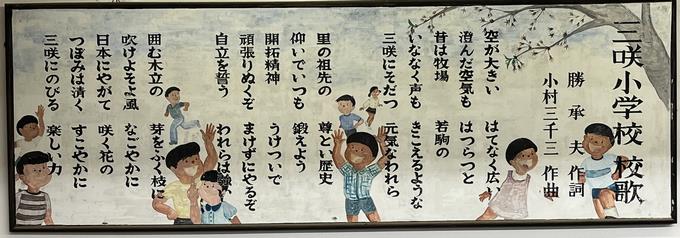 三咲小学校 校歌
勝 承夫 作詞
小村三千三 作曲
空が大きい はてなく広い
澄んだ空気も はつらつと
昔は牧場 若駒の
いななく声も きこえるような
三咲にそだつ 元気なわれら
里の祖先の 尊とい歴史
仰いでいつも 鍛えよう
開拓精神 うけついで
頑張りぬくぞ まけずにやるぞ
自立を誓う われらは強い
囲む木立の 芽をふく枝に
吹けよそよ風 なごやかに
日本にやがて 咲く花の
つぼみは清く すこやかに
三咲にのびる 楽しい力